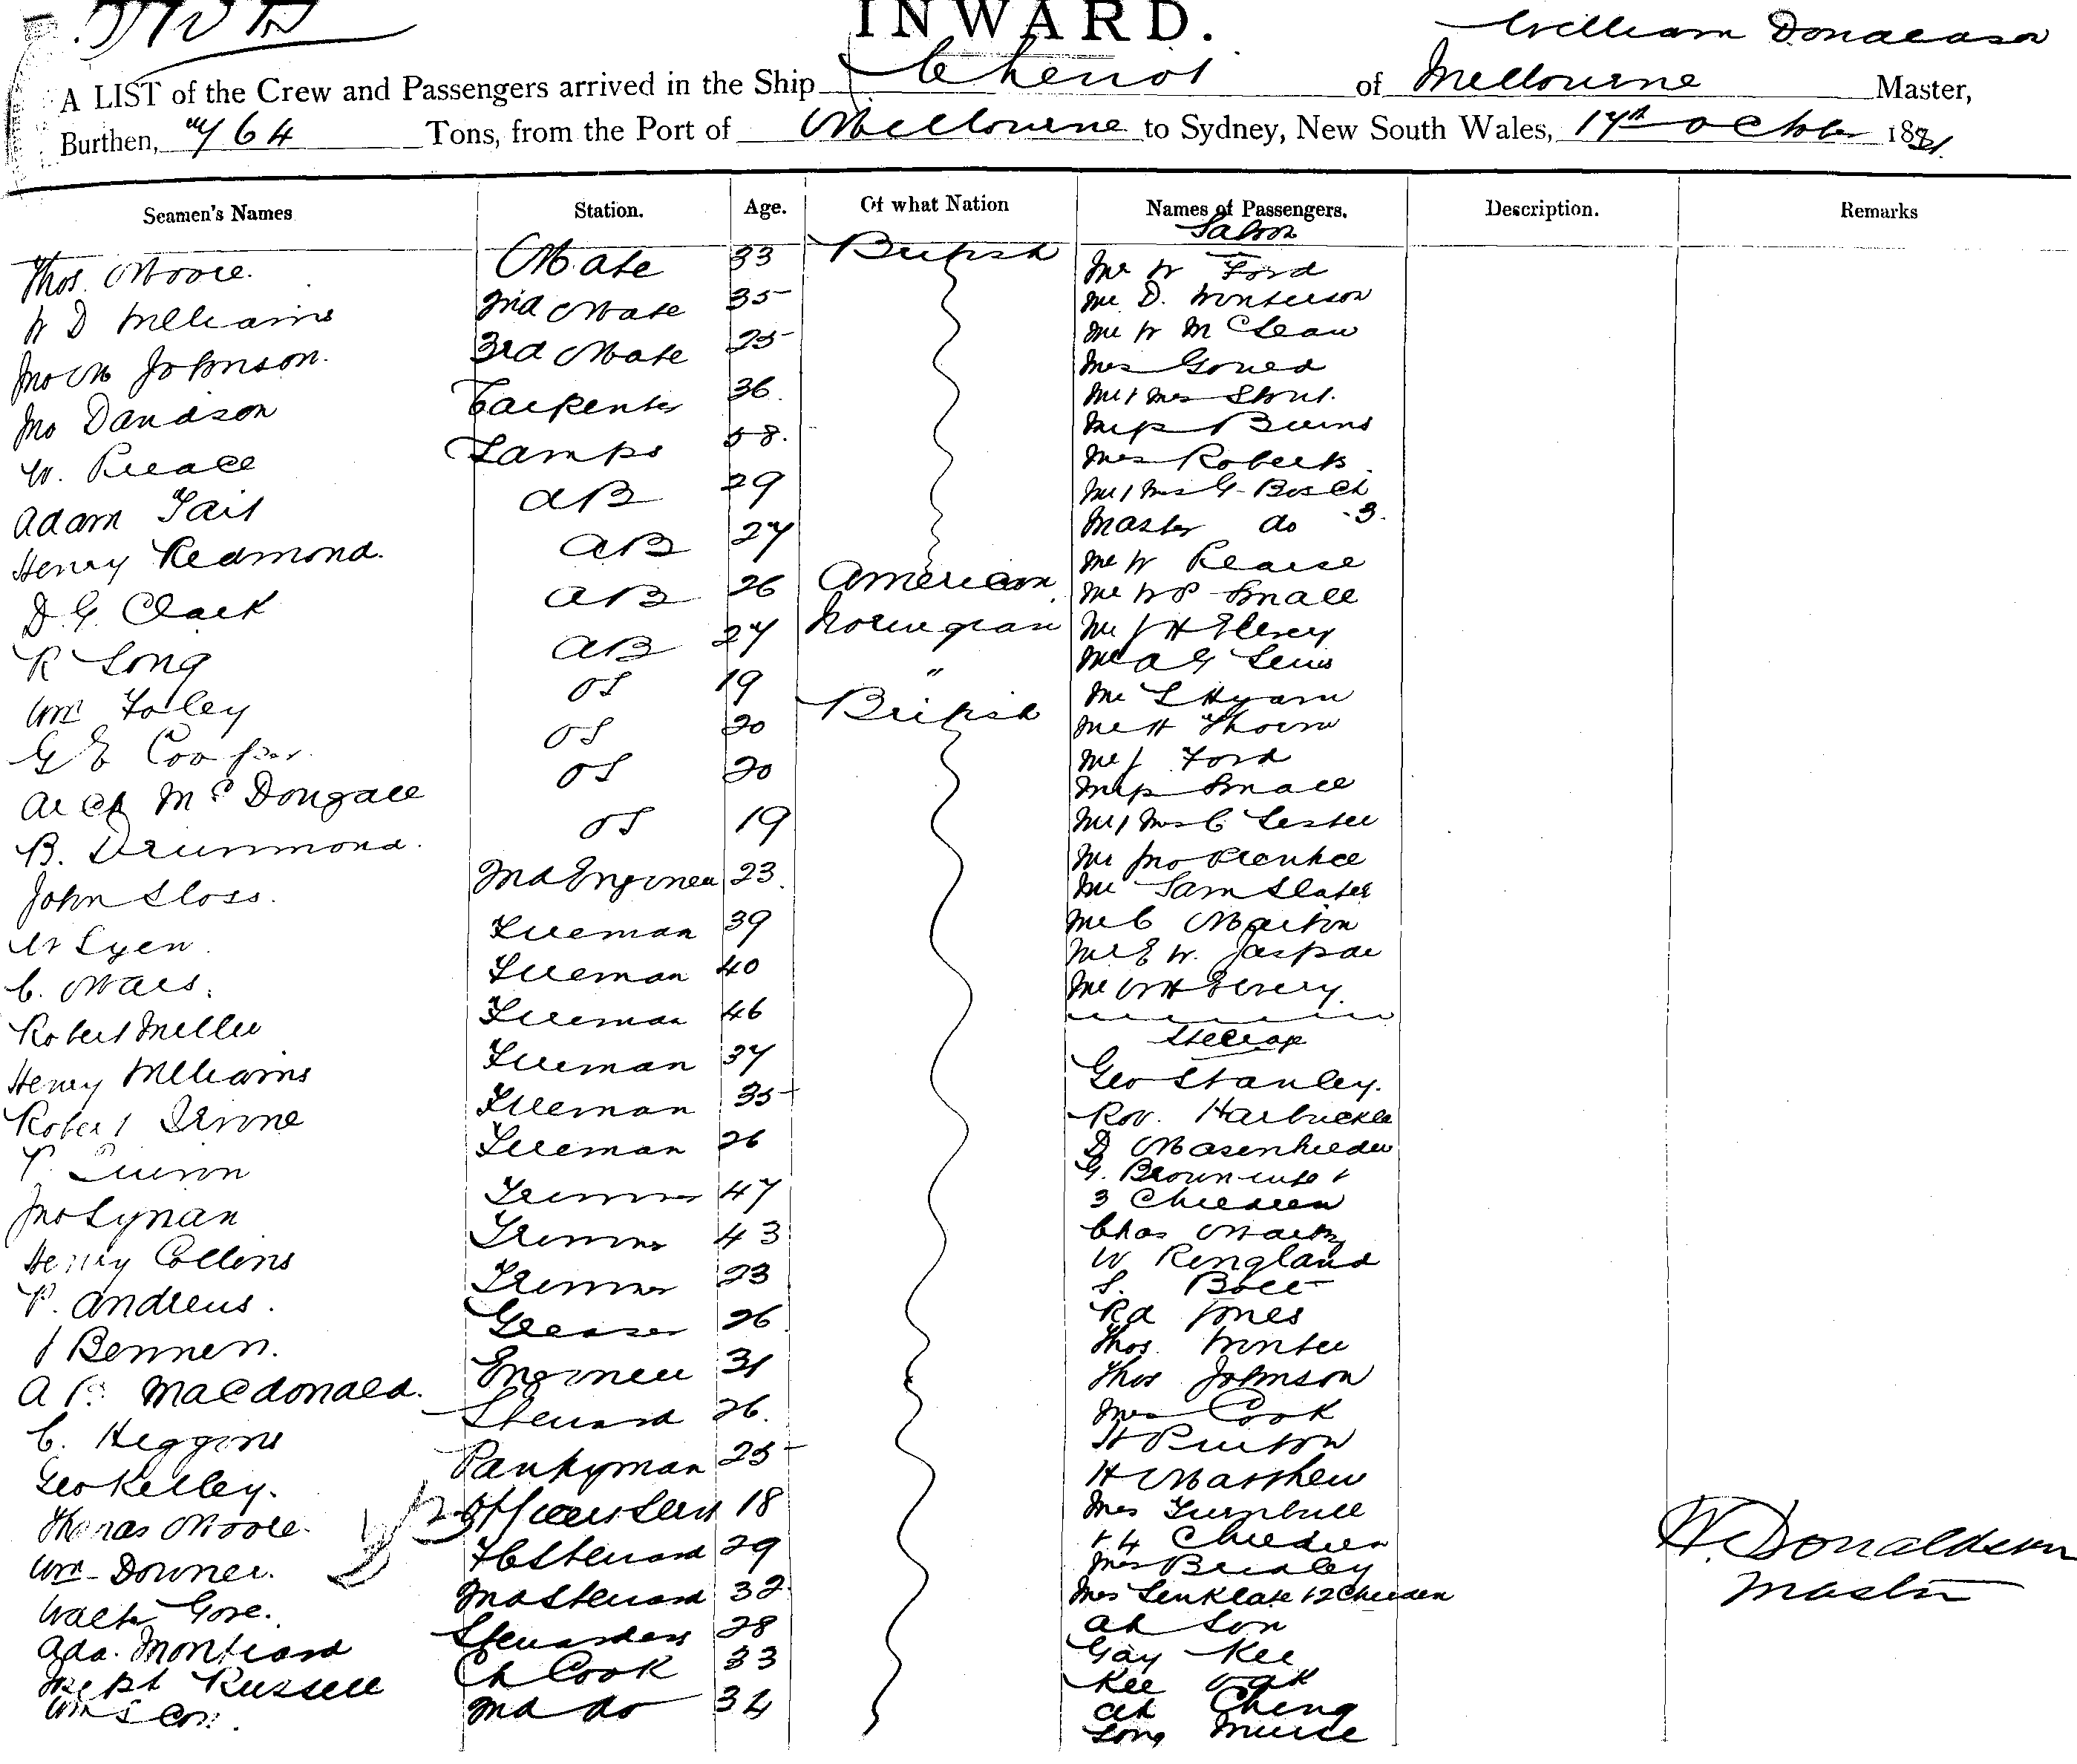 INWARD.
William Donaldson
A LIST of the Crew and Passengers arrived in the Ship Cheviot of Melbourne Master,
Burthen, 764 Tons, from the Port of Melbourne to Sydney, New South Wales, 17th October 1881.
Seamen's Names Station. Age. Of what Nation Names of Passengers. Description. Remarks
Saloon
Thos. Moore. Mate 33 British Mr W Ford
W D Williams 2nd Mate 35 Mr D. Winterson
Jno M Johnson. 3rd Mate 25 Mr W McLean
Mrs Gould
Jno Davidson Carpenter 36. Mr & Mrs Stout.
W. Peace Lamps 58. Miss Burns
Mrs Roberts.
Adam Tait AB 29 Mr & Mrs G. Bosch
Master do - 3.
Henry Redmond. AB 27 Mr W Pearse
D. G. Clark AB 26 American Mr W P Small
R Long AB 27 Norwegian Mr J H Elvery
Mr A G Lewis
Wm Foley OS 19 " Mr L Hyam
G E Cooper. OS 20 British Mr H Thorn
Mr J. Ford
Arch McDougall OS 20 Miss Small
B. Drummond. OS 19 Mr & Mrs C Lester
Mr Jno Prentice
John Sloss. 2nd Engineer 23. Mr Sam Slater
W Lyen. Fireman 39 Mr C Martin
Mr E W. Jaspar
C. Mars. Fireman 40 Mr W H Elvery.
Robert Miller Fireman 46
Steerage
Henry Williams Fireman 37 Geo Stanley.
Robert Irvine Fireman 35 Rob. Harbuckle
P. Quinn Fireman 26 D Masenhelder
G. Brown wife &
Jno Lynan Trimmer 47 3 Children
Henry Collins Trimmer 43 Chas Martin
W Ringland
P. Andrews. Trimmer 23 S. Bolt
J Bennen. Greaser 26. Rd Jones
Thos. Winter
A P. MacDonald. Engineer 31 Thos Johnson
C. Higgins Steward 26. Mrs Cook
H Purton
Geo Kelley. Pantryman 25 H Matthew
Thomas Moore. Officers Servt 18 Mrs Turnbull
& 4 Children
Wm Downer. F C Steward 29 Mrs Brinley
Walter Gore. 2nd Steward 32. Mrs Linklate & 2 Children
Ada. Monteard Stewardess 28 Ah Son
Gay Kee
Joseph Russell Ch Cook 33 Kee Oak
Wm S Cox. 2nd do 34 Ah Cheng
Long
W. Donaldson
Master